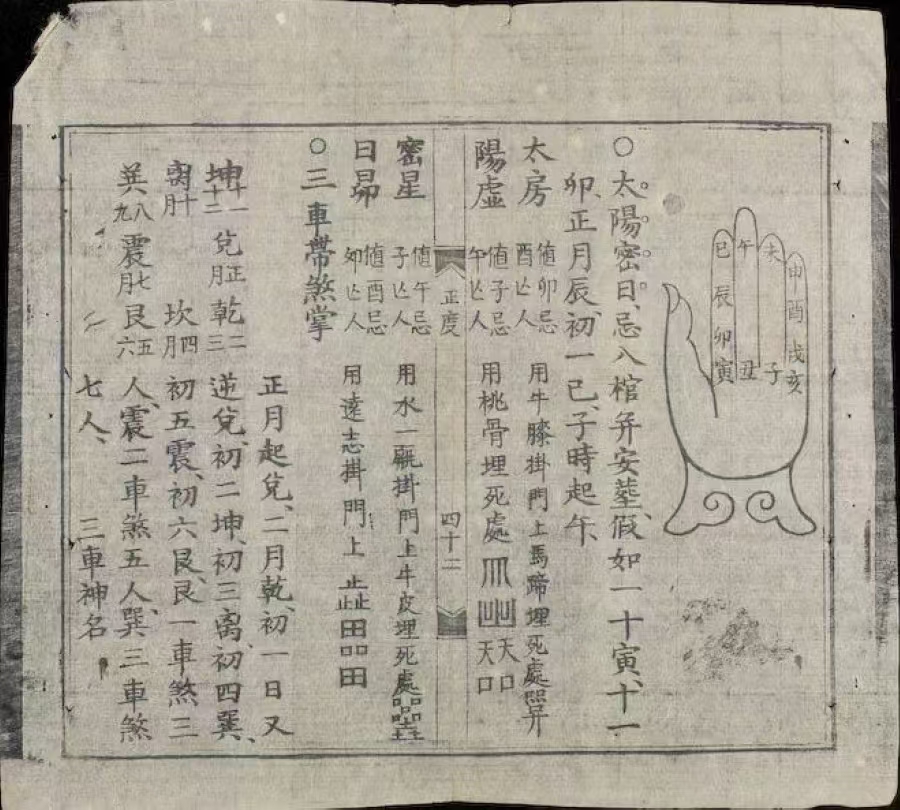 申酉戌亥
未子
午丑
巳辰卯寅
○太陽密日、忌八棺弁安塟、假如一十寅、十一
卯、正月辰、初一己、子時起午、
太房 值卯忌酉亾人 用牛膝掛門上馬蹄埋死處
陽虚 值子忌午亾人 用桃骨埋死處
正度 四十二
密星 值午忌子亾人 用水一瓶掛門上牛皮埋死處
日昴 值酉忌夘亾人 用遠志掛門上
○三車帶煞掌
正月起兌、二月乾、初一日又
坤十一十二 兌正月 乾二三 逆兌、初二坤、初三离、初四巽、
十月 坎四月 初五震、初六艮、艮一車煞三
巽八九 震七月 艮五六 人、震二車煞五人、巽三車煞
七人、 三車神名